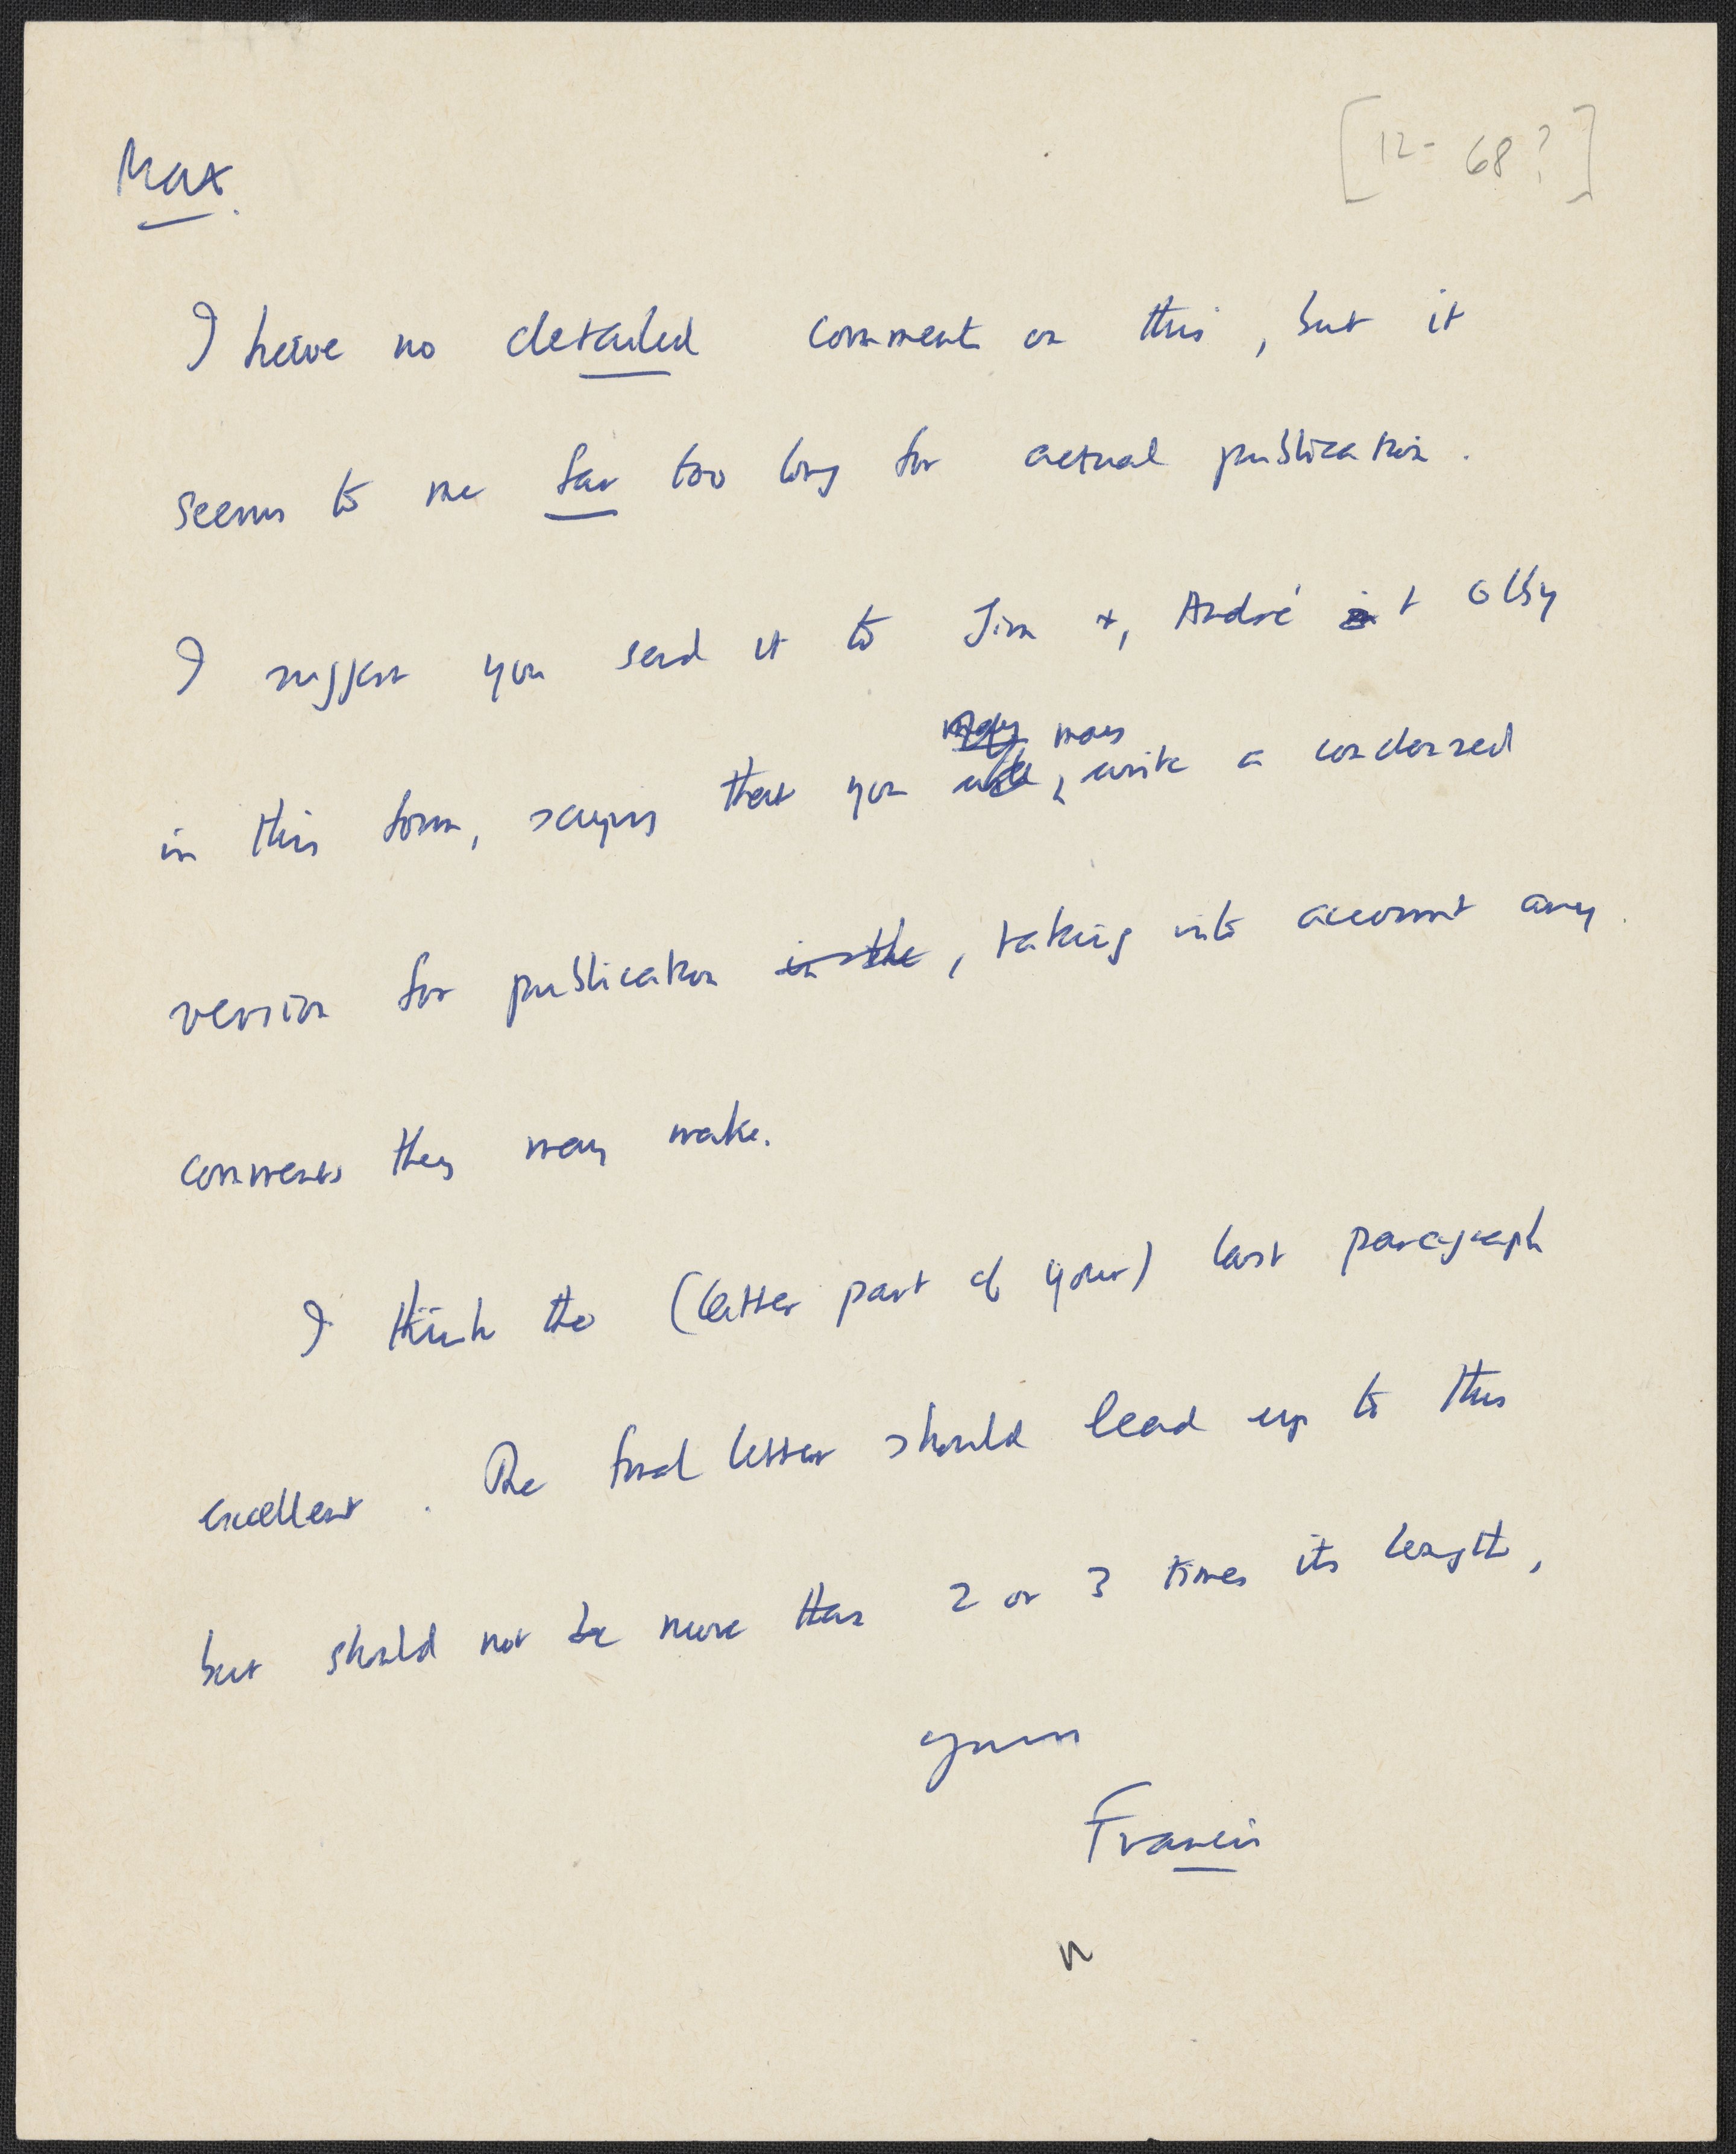 [12-68?]
Max.
I have no detailed comments on this, but it
seems to me far too long for actual publication.
I suggest you send it to Jim +, André + Olby
may
in this form, saying that you write a condensed
version for publication in the, taking into account any
comments they may make.
I think the (latter part of your) last paragraph
excellent. The final letter should lead up to this
but should not be more than 2 or 3 times its length,
yours
Francis